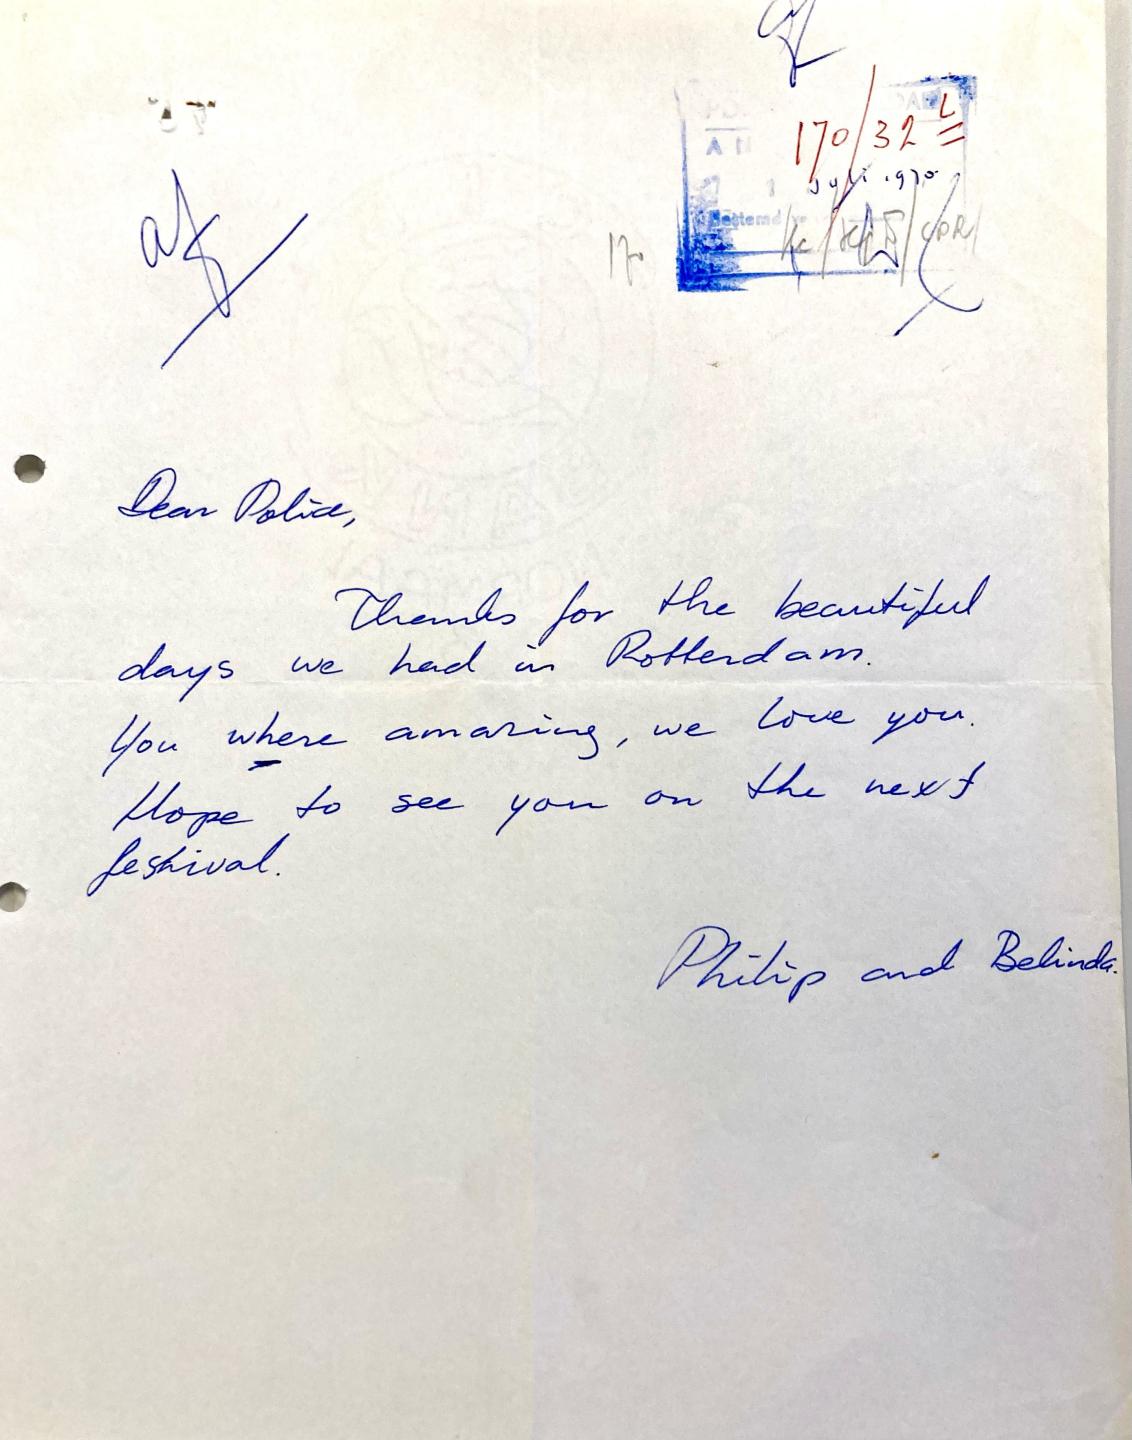 af
170/32 L
juli 1970
170
af
Dear Police,
Thanks for the beautiful
days we had in Rotterdam.
You where amazing, we love you.
Hope to see you on the next
festival.
Philip and Belinda.